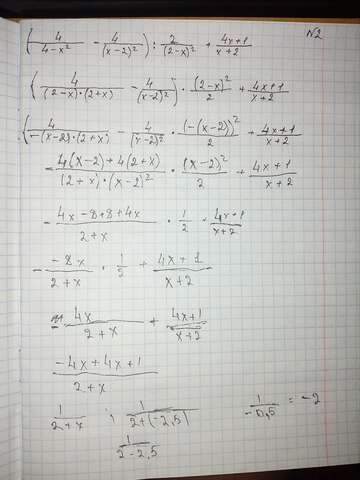 №2
(4/(4-x²) - 4/(x-2)²) : 2/(2-x)² + (4x+1)/(x+2)
(4/((2-x)·(2+x)) - 4/(x-2)²) · (2-x)²/2 + (4x+1)/(x+2)
(4/(-(x-2)·(2+x)) - 4/(x-2)² · (-(x-2))²/2 + (4x+1)/(x+2)
-(4(x-2)+4(2+x))/((2+x)·(x-2)²) · (x-2)²/2 + (4x+1)/(x+2)
-(4x-8+8+4x)/(2+x) · 1/2 · (4x+1)/(x+2)
-(-8x)/(2+x) · 1/2 + (4x+1)/(x+2)
= 4x/(2+x) + (4x+1)/(x+2)
(-4x+4x+1)/(2+x)
1/(2+x) ; 1/(2+(-2,5)) 1/(-0,5) = -2
1/(2-2,5)